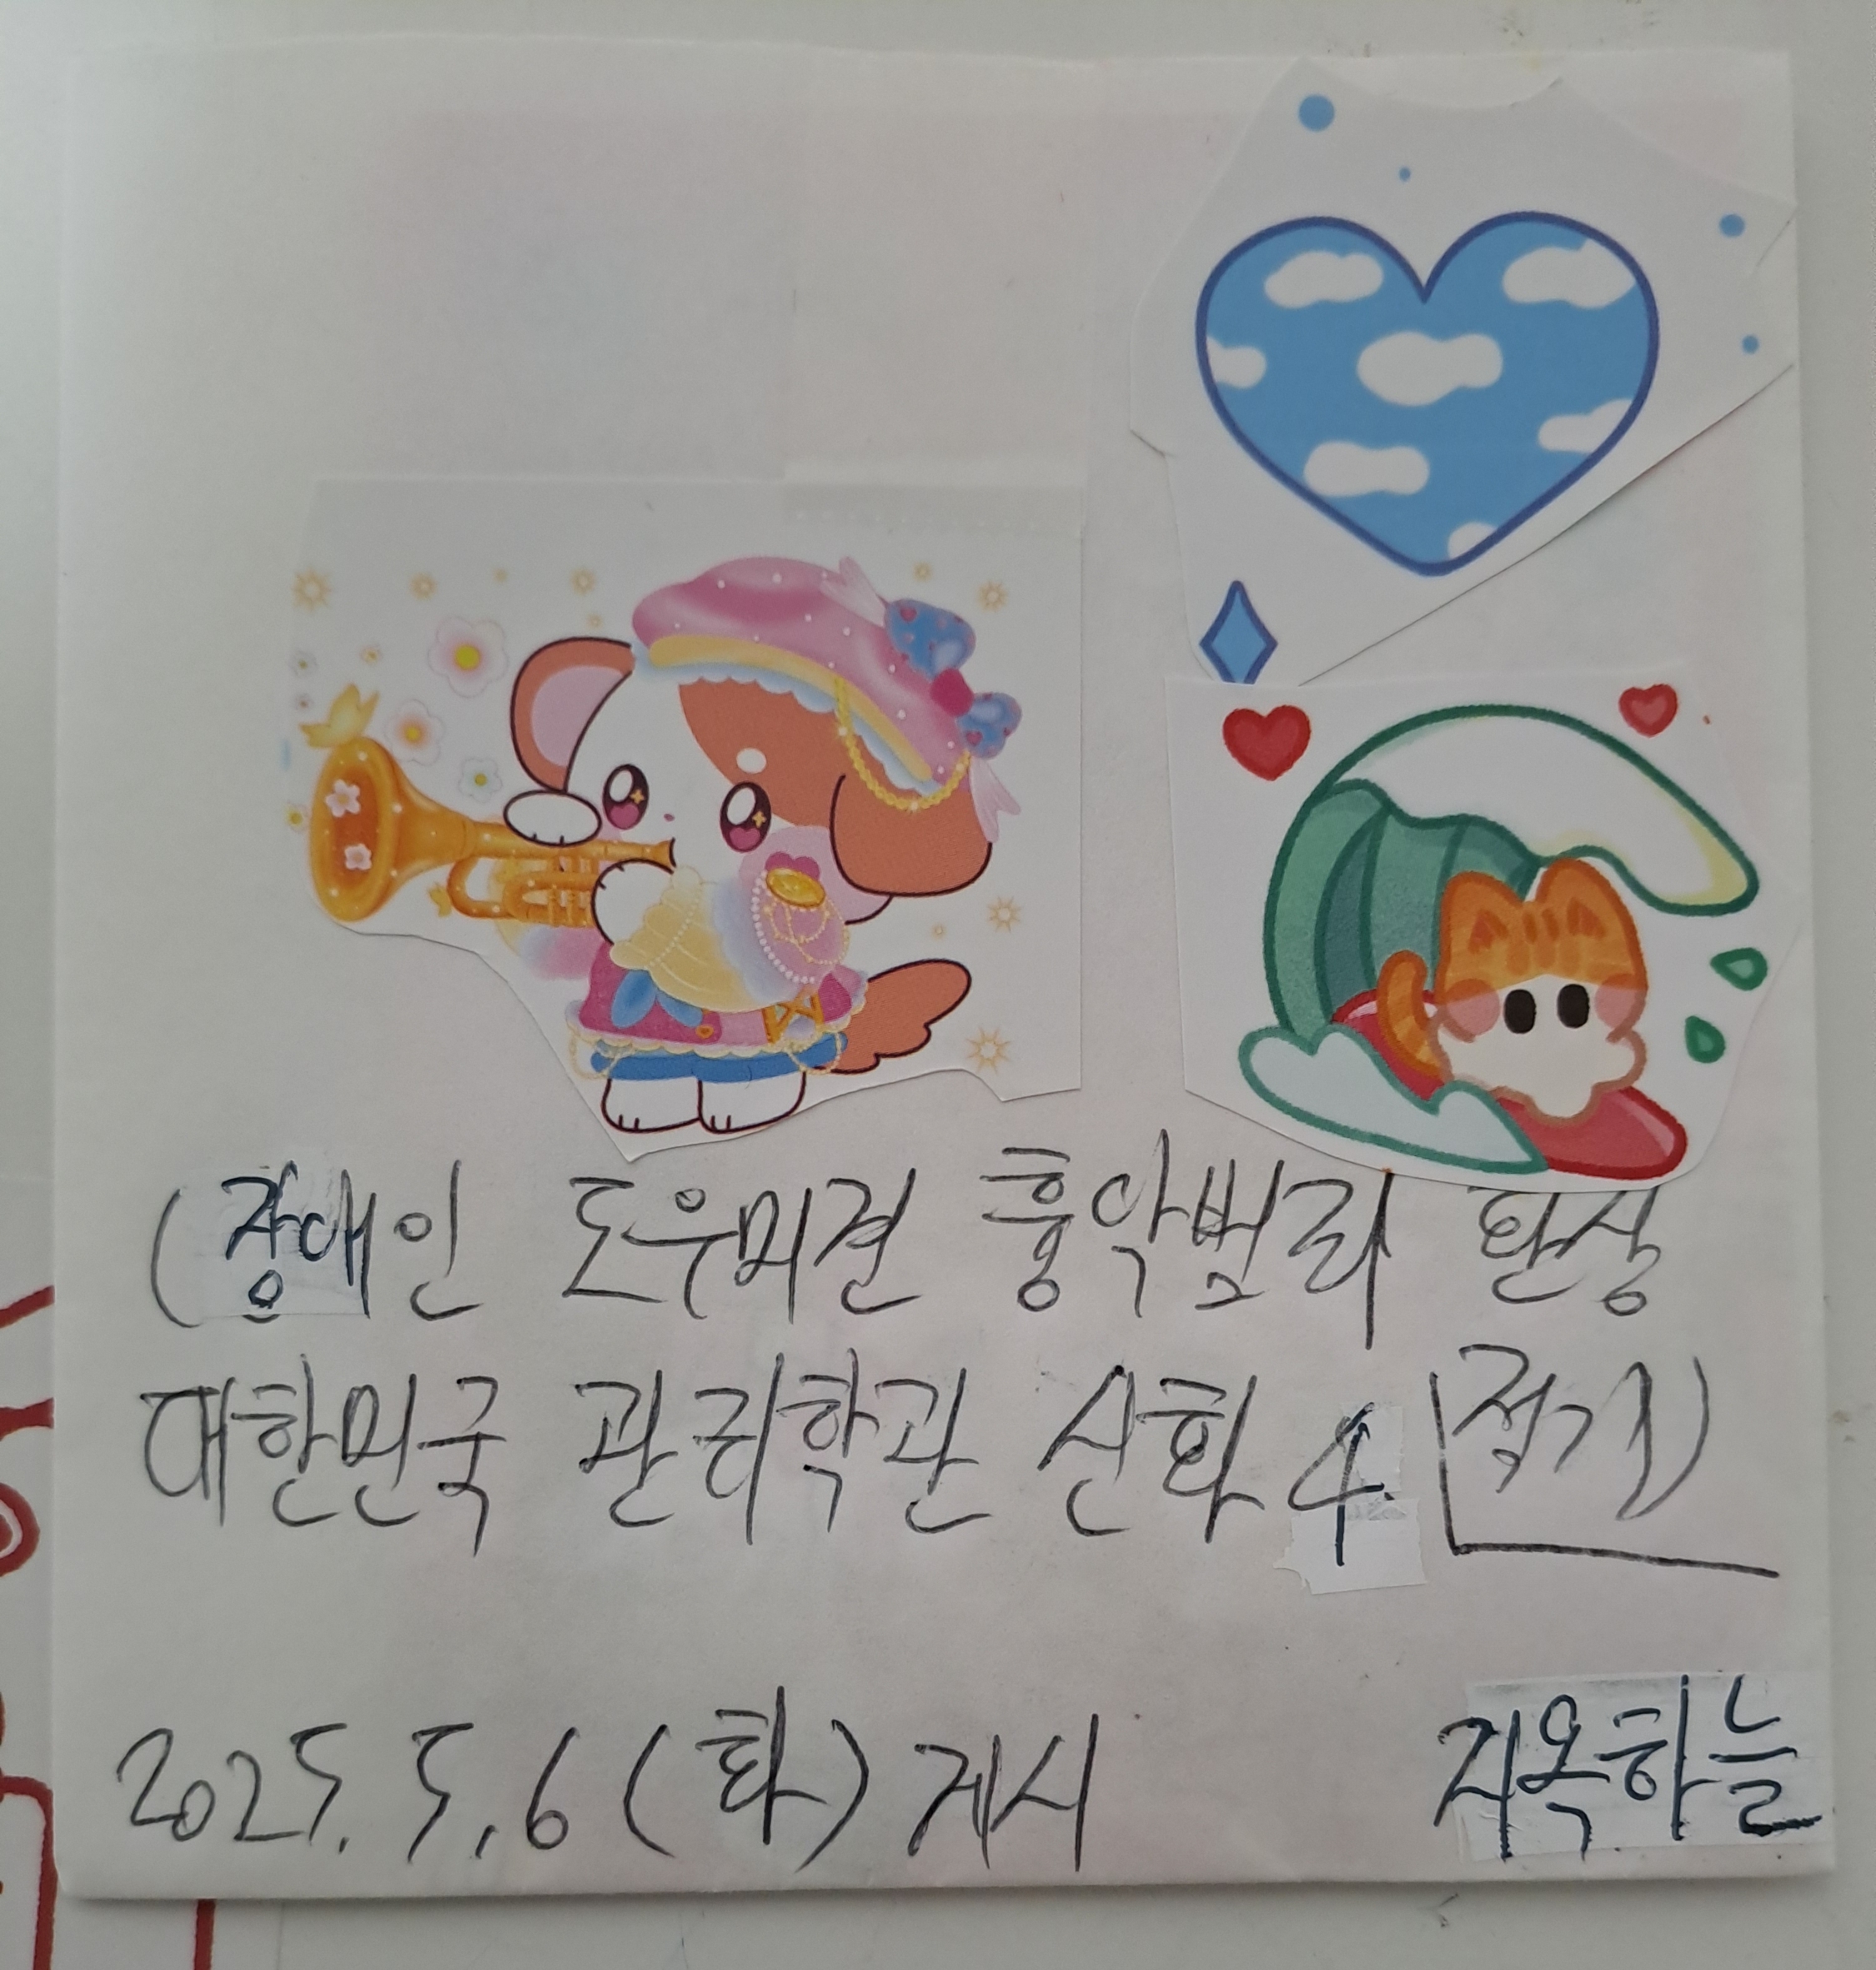 (장애인 도우미견 흉악범괴 환상
대한민국 관리학관 신화 4. 정기)
2025. 5. 6 (화) 게시 지옥하늘